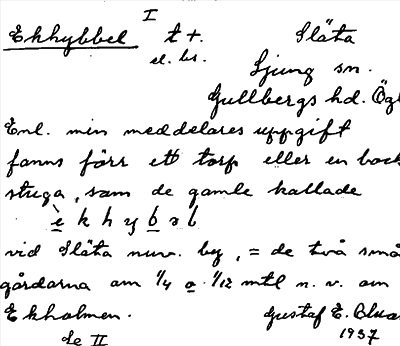 I
Ekhybbel t +. Släta
el. bs. Ljung sn.
Gullbergs hd. Ögl
Enl. min meddelares uppgift
fanns förr ett torp eller en back
stuga, som de gamle kallade
èkhybəl
vid Släta nuv. by, = de två små
gårdarna om 1/4 o. 1/12 mtl n. v. om
Ekholmen. Gustaf E.
1937
Se II